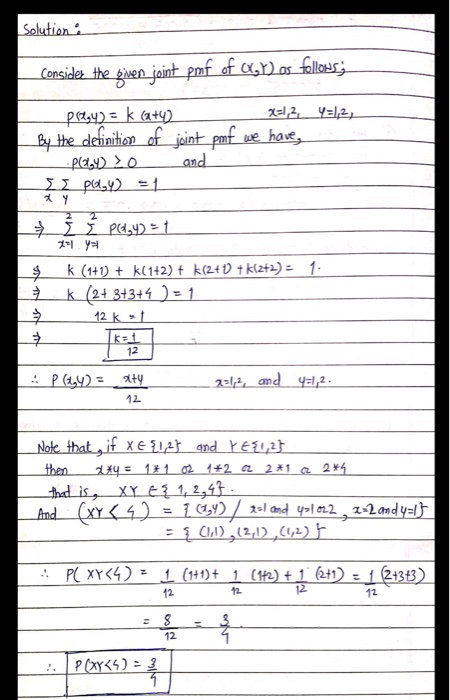 Solution:
Consider the given joint pmf of (X,Y) as follows;
p(x,y) = k (x+y)    x=1,2,  y=1,2,
By the definition of joint pmf we have,
p(x,y) ≥ 0    and
Σ Σ p(x,y) = 1
x y
⇒ 2Σx=1 2Σy=1 p(x,y) = 1
⇒ k (1+1) + k(1+2) + k(2+1) + k(2+2) = 1.
⇒ k (2+3+3+4) = 1
⇒ 12 k = 1
⇒ k = 1/12
∴ P(x,y) = x+y/12    x=1,2, and y=1,2.
Note that, if X∈{1,2} and Y∈{1,2}
then x*y = 1*1 or 1*2 or 2*1 or 2*4
that is, XY ∈ {1,2,4}.
And (XY<4) = {(x,y) / x=1 and y=1 or 2, x=2 and y=1}
= {(1,1), (2,1), (1,2)}
∴ P(XY<4) = 1/12 (1+1) + 1/12 (1+2) + 1/12 (2+1) = 1/12 (2+3+3)
= 8/12 = 3/4.
∴ P(XY<4) = 3/4